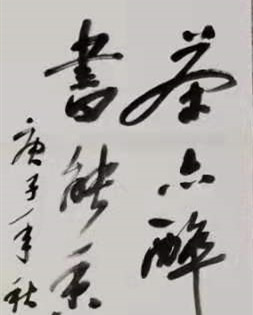 茶亦醉
書能香
庚子年秋